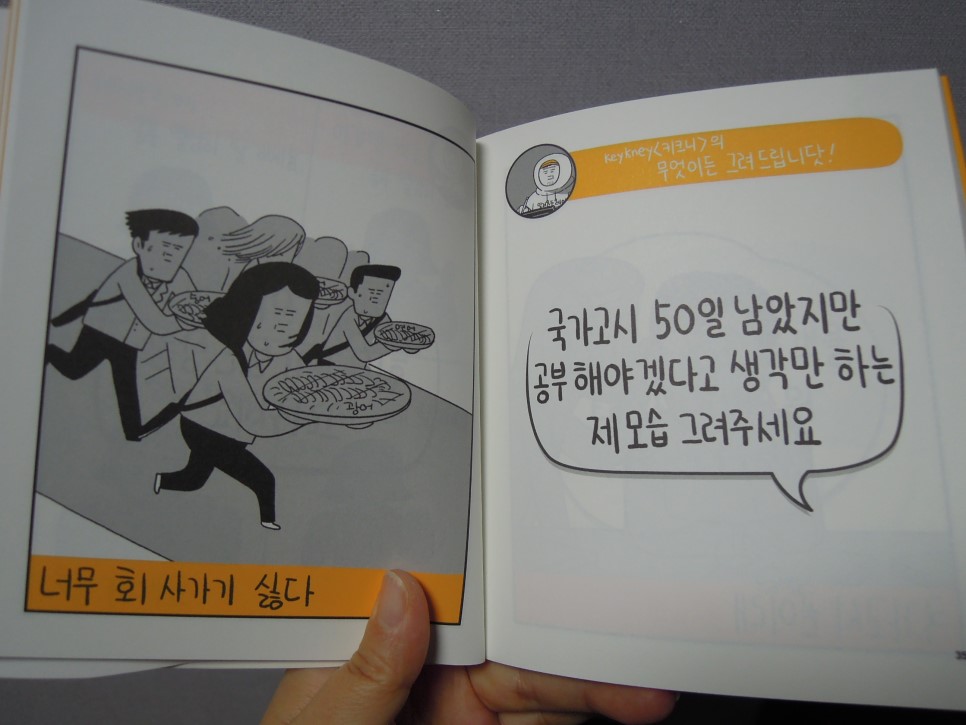 광어
광어
너무 회 사가기 싫다
Keykney<키크니>의
무엇이든 그려 드립니닷!
국가고시 50일 남았지만
공부해야겠다고 생각만 하는
제 모습 그려주세요